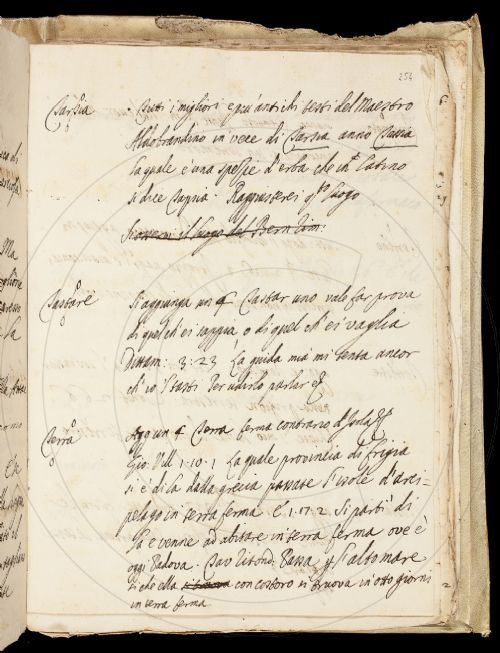 254
Tarsia · Tutti i migliori e più antichi testi del Maestro
Aldobrandino in vece di Tarsia anno Tassia
la quale è una spezie d'erba che in latino
si dice Tapsia · Rappiastrerei q.to luogo
il luogo del
Tastare Si aggiunga un § Tastar uno vale far prova
di quel ch'ei sappia, o di quel ch'ei vaglia
Dittam: 3: 23 La guida mia mi tenta ancor
ch'io tasti Per udirlo parlar &
Terra Agg: un § Terra ferma contrario d'Isola &
Gio: Vill 1·10·1 La quale provincia di frigia
si è di là dalla grecia passate l'isole d'arci-
pelago in terra ferma E 1·17·2 Si partì di
là e venne ad abitare in terra ferma ove è
oggi Padova · Tav Ritond. Passa l'alto mare
si che ella con costoro si truova in otto giorni
in terra ferma